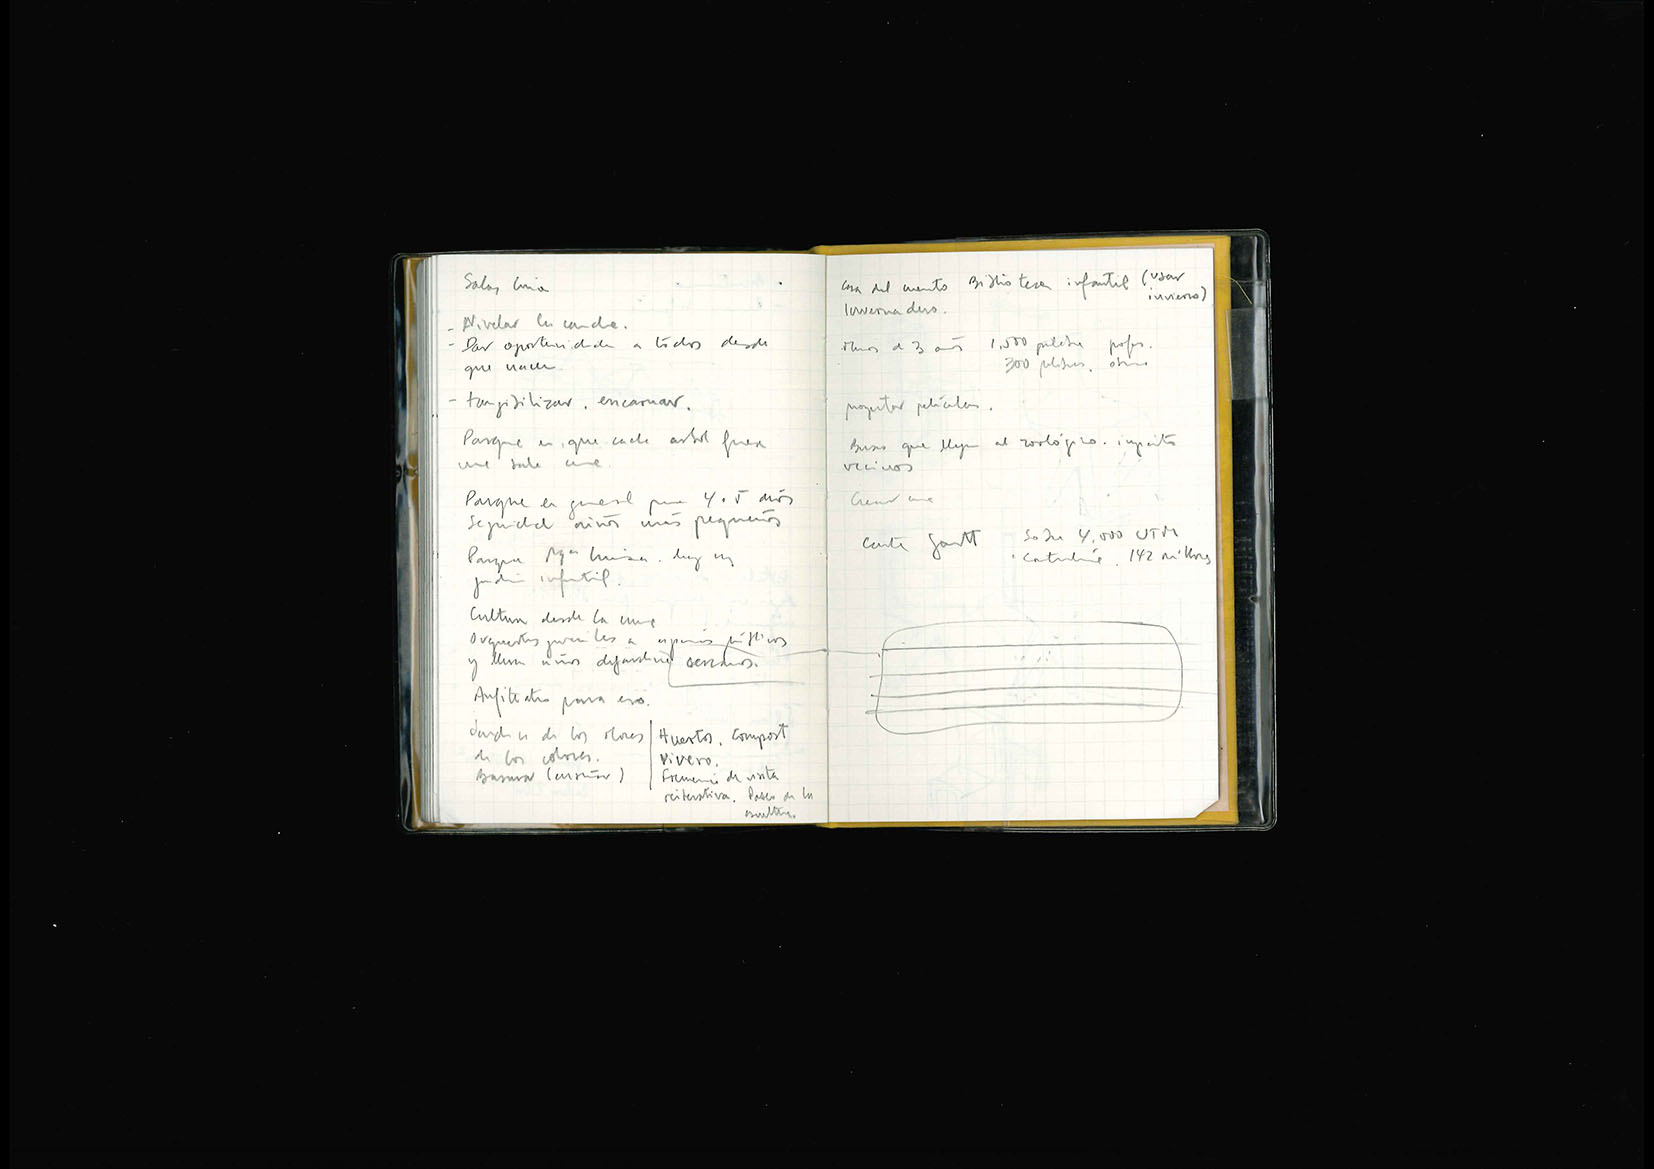 Salas Cuna
- Nivelar la cancha.
- Dar oportunidades a todos desde
que nacen
- tangibilizar. encarnar.
Parque en que cada arbol fuera
una sala cuna.
Parque en general para 4.5 años
Seguridad niños más pequeños
Parque hay un
jardín infantil.
Cultura desde la cuna
Orquestas juveniles a espacios públicos
y llevar niños de jardines cercanos.
Anfiteatro para eso.
Jardín de los olores
de los colores.
Basura (enseñar)
Huertos. Compost
Vivero.
Frecuencia de visita
reiterativa. Paseo de la
Casa del cuento Biblioteca infantil (usar
invierno)
Invernadero.
de 3 años 1,500 profes.
300
proyectar películas.
Buses que llegan al zoológico. impacto
vecinos
Carta Gantt Sobre 4,000 UTM
142 millones